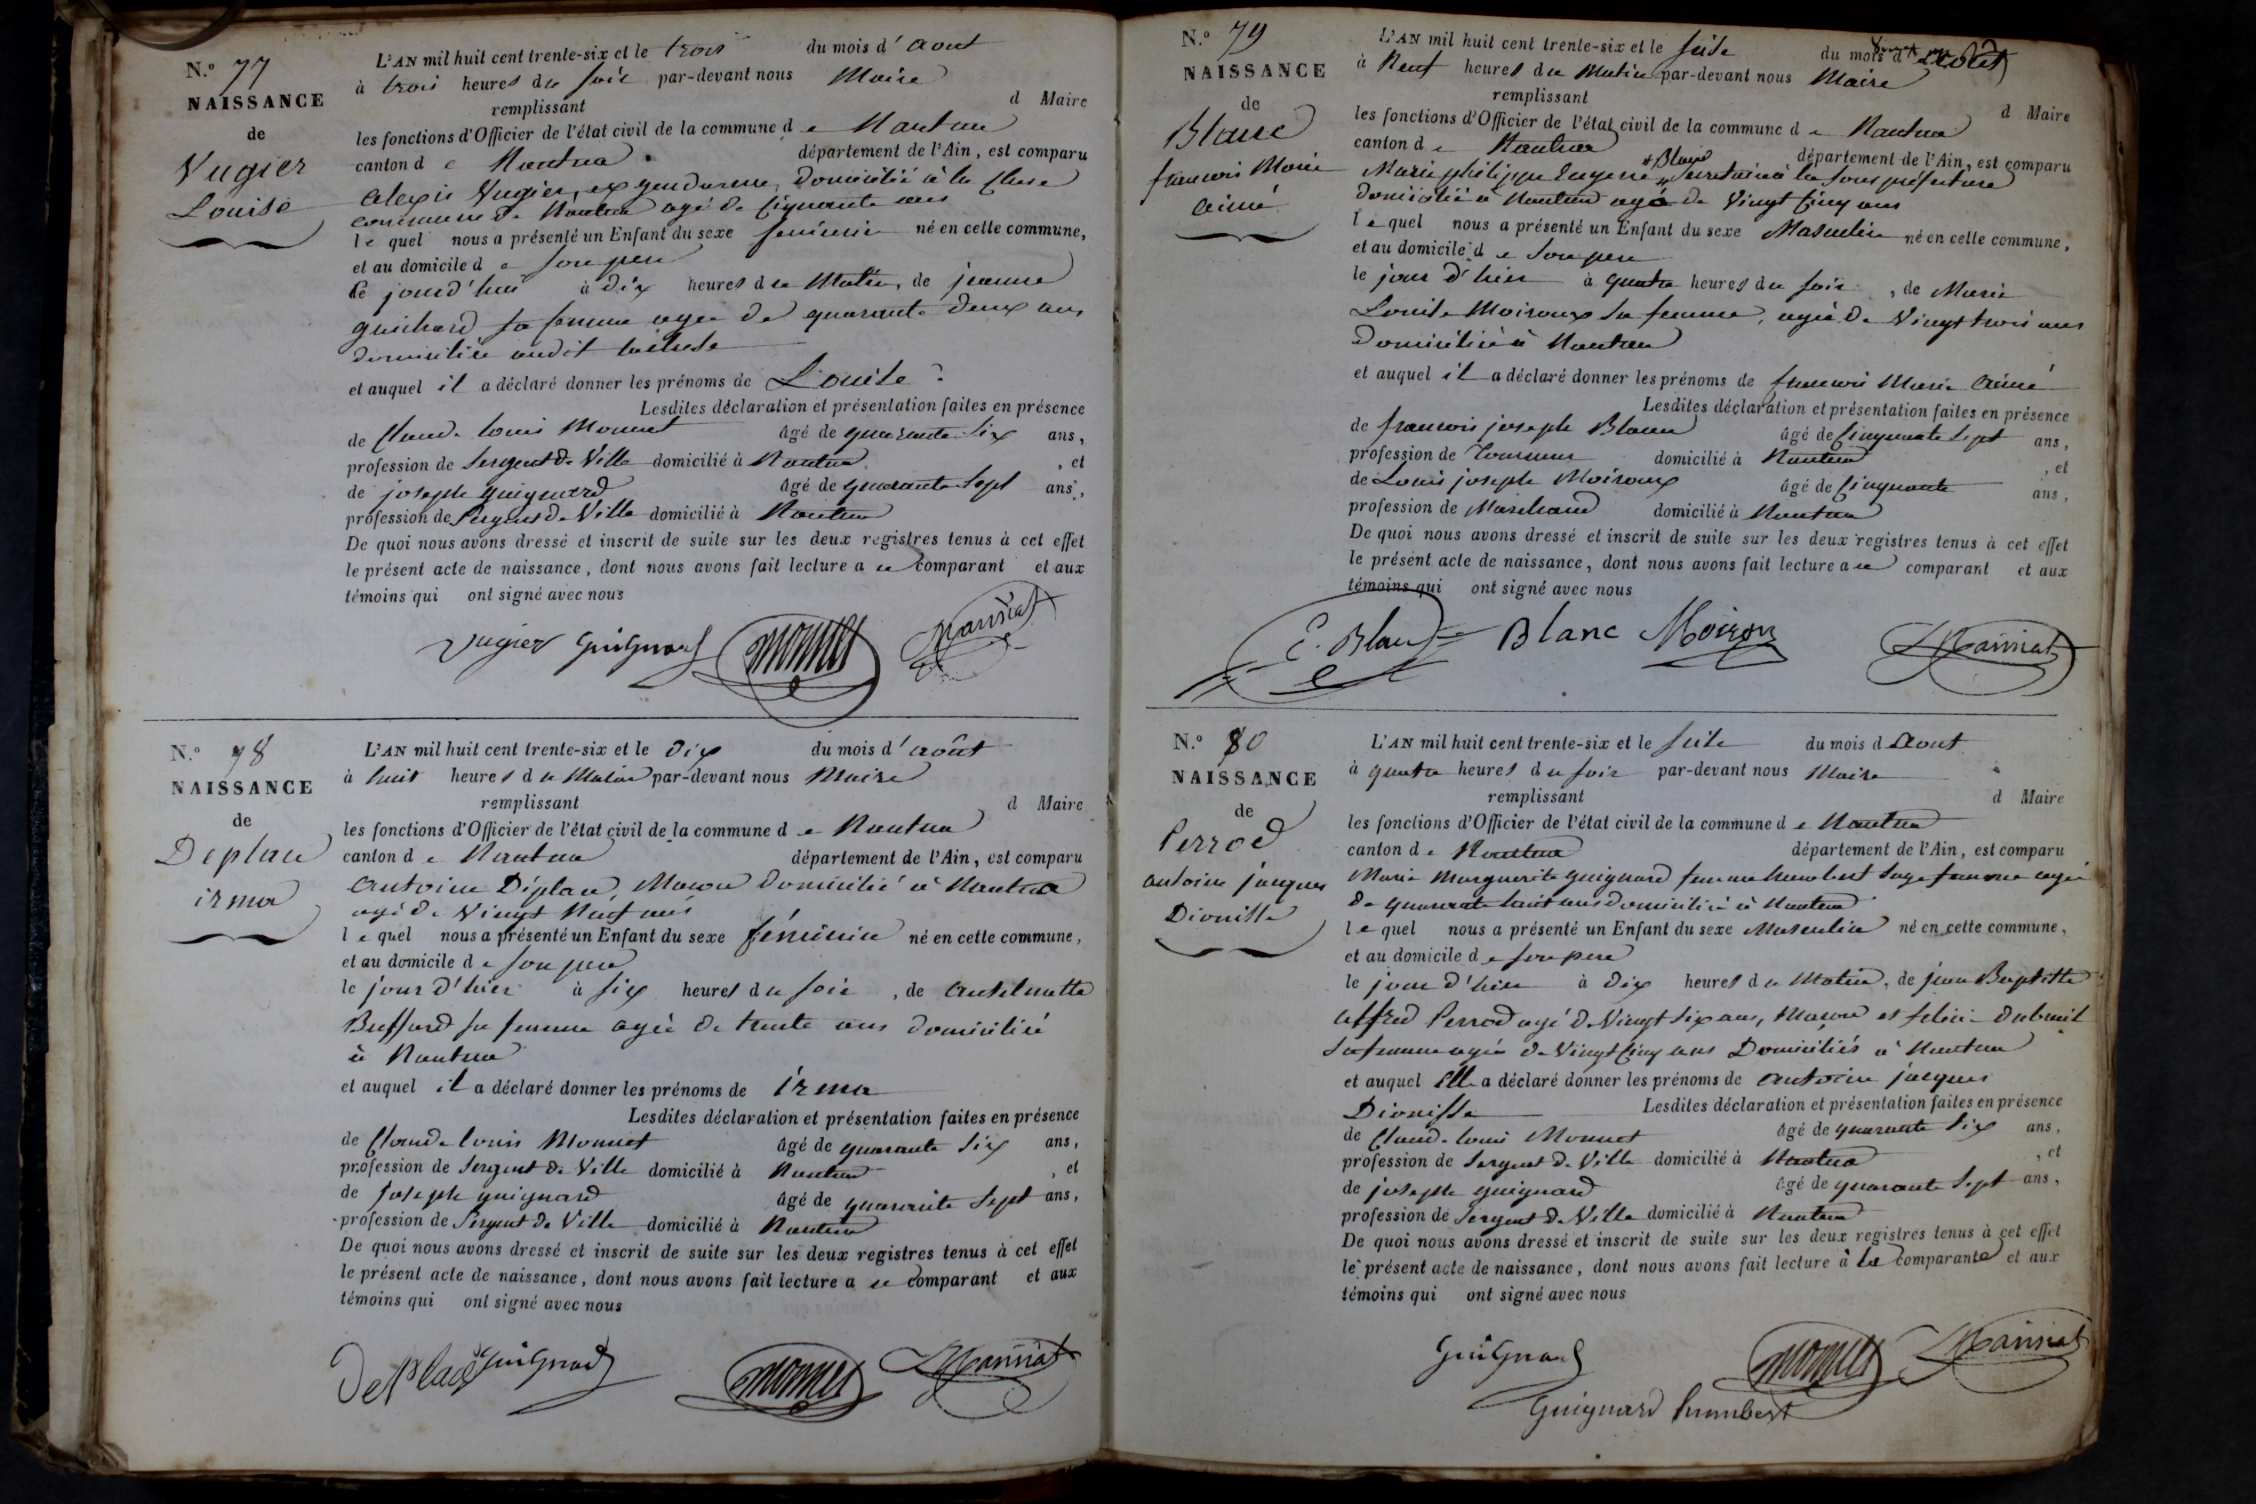 N.º 77
NAISSANCE
de
Vugier
Louise
L'AN mil huit cent trente-six et le trois du mois d'aout
à trois heures du soir par-devant nous Maire
remplissant d Maire
les fonctions d'Officier de l'état civil de la commune de Nantua
canton de Nantua département de l'Ain, est comparu
alexis Vugier, ex gendarme, domicilié à la Cluse
commune de Nantua agé de Cinquante ans
lequel nous a présenté un Enfant du sexe feminin né en cette commune,
et au domicile de son pere
ce jourd'hui à dix heures du Matin, de jeanne
guichard sa femme agée de quarante deux ans
domiciliée audit lacluse
et auquel il a déclaré donner les prénoms de Louise
Lesdites déclaration et présentation faites en présence
de Claude louis Monnet âgé de quarante Six ans,
profession de Sergent de Ville domicilié à Nantua, et
de joseph guignard âgé de quarante Sept ans,
profession de Sergent de Ville domicilié à Nantua
De quoi nous avons dressé et inscrit de suite sur les deux registres tenus à cet effet
le présent acte de naissance, dont nous avons fait lecture au comparant et aux
témoins qui ont signé avec nous
Vugier Guignard Monnet Manniat
N.º 78
NAISSANCE
de
Deplace
irma
L'AN mil huit cent trente-six et le dix du mois d'août
à huit heures du Matin par-devant nous Maire
remplissant d Maire
les fonctions d'Officier de l'état civil de la commune de Nantua
canton de Nantua département de l'Ain, est comparu
antoine Déplace, Macon domicilié à Nantua
agé de Vingt Neuf ans
lequel nous a présenté un Enfant du sexe féminin né en cette commune,
et au domicile de son pere
le jour d'hier à six heures du soir, de anthelmette
Buffard sa femme agée de trente ans domiciliée
à Nantua
et auquel il a déclaré donner les prénoms de irma
Lesdites déclaration et présentation faites en présence
de Claude louis Monnet âgé de quarante Six ans,
profession de Sergent de Ville domicilié à Nantua, et
de Joseph guignard âgé de quarante Sept ans,
profession de Sergent de Ville domicilié à Nantua
De quoi nous avons dressé et inscrit de suite sur les deux registres tenus à cet effet
le présent acte de naissance, dont nous avons fait lecture au comparant et aux
témoins qui ont signé avec nous
Deplace Guignard Monnet Manniat
N.º 79
NAISSANCE
de
Blanc
francois Marie
aimé
L'AN mil huit cent trente-six et le seize du mois d'août
à Neuf heures du Matin par-devant nous Maire
remplissant d Maire
les fonctions d'Officier de l'état civil de la commune de Nantua
canton de Nantua département de l'Ain, est comparu
Marie philippe Eugene Blanc Secretaire à la Sous préfecture
domicilié à Nantua agé de Vingt Cinq ans
lequel nous a présenté un Enfant du sexe Masculin né en cette commune,
et au domicile de son pere
le jour d'hier à quatre heures du soir, de Marie
Louise Moiroux sa femme, agée de Vingt trois ans
Domiciliée à Nantua
et auquel il a déclaré donner les prénoms de francois Marie aimé
Lesdites déclaration et présentation faites en présence
de francois joseph Blanc âgé de Cinquante Sept ans,
profession de Tourneur domicilié à Nantua, et
de Louis joseph Moiroux âgé de Cinquante ans,
profession de Marchand domicilié à Nantua
De quoi nous avons dressé et inscrit de suite sur les deux registres tenus à cet effet
le présent acte de naissance, dont nous avons fait lecture au comparant et aux
témoins qui ont signé avec nous
E. Blanc Blanc Moiroux Manniat
N.º 80
NAISSANCE
de
Perrod
antoine jacques
Dionisse
L'AN mil huit cent trente-six et le seize du mois d Aout
à quatre heures du soir par-devant nous Maire
remplissant d Maire
les fonctions d'Officier de l'état civil de la commune de Nantua
canton de Nantua département de l'Ain, est comparu
Marie Marguerite guignard femme humbert Sage femme agée
de quarante huit ans domiciliée à Nantua
lequel nous a présenté un Enfant du sexe Masculin né en cette commune,
et au domicile de son pere
le jour d'hier à dix heures du Matin, de jean Baptiste
alfred Perrod agé de Vingt Six ans, Macon et felicie Dubreuil
sa femme agée de Vingt Cinq ans Domiciliés à Nantua
et auquel Elle a déclaré donner les prénoms de antoine jacques
Dionisse Lesdites déclaration et présentation faites en présence
de Claude louis Monnet âgé de quarante Six ans,
profession de Sergent de Ville domicilié à Nantua, et
de joseph guignard âgé de quarante Sept ans,
profession de Sergent de Ville domicilié à Nantua
De quoi nous avons dressé et inscrit de suite sur les deux registres tenus à cet effet
le présent acte de naissance, dont nous avons fait lecture à la comparante et aux
témoins qui ont signé avec nous
Guignard Monnet Manniat
Guignard humbert